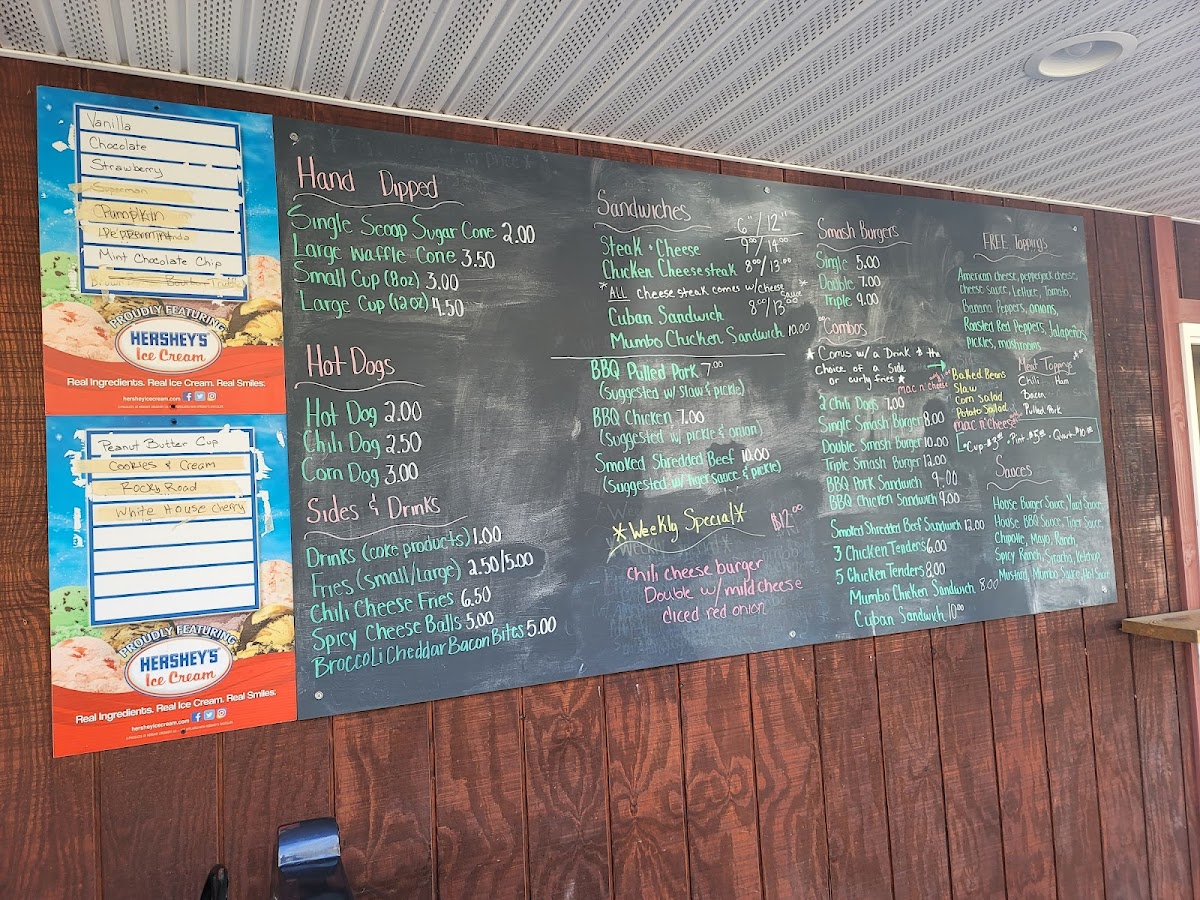 Vanilla
Chocolate
Strawberry
Superman
Pumpkin
Peppermint
Mint Chocolate Chip
PROUDLY FEATURING
HERSHEY'S
Ice Cream
Real Ingredients. Real Ice Cream. Real Smiles.
hersheyicecream.com
Peanut Butter Cup
Cookies & Cream
Rocky Road
White House Cherry
PROUDLY FEATURING
HERSHEY'S
Ice Cream
Real Ingredients. Real Ice Cream. Real Smiles.
hersheyicecream.com
Hand Dipped
Single Scoop Sugar Cone 2.00
Large Waffle Cone 3.50
Small Cup (8oz) 3.00
Large Cup (12oz) 4.50
Hot Dogs
Hot Dog 2.00
Chili Dog 2.50
Corn Dog 3.00
Sides & Drinks
Drinks (coke products) 1.00
Fries (small/Large) 2.50/5.00
Chili Cheese Fries 6.50
Spicy Cheese Balls 5.00
Broccoli Cheddar Bacon Bites 5.00
Sandwiches
6"/12"
Steak & Cheese 9.00/14.00
Chicken Cheesesteak 8.00/13.00
*ALL cheesesteak comes w/cheese sauce*
Cuban Sandwich 8.00/13.00
Mumbo Chicken Sandwich 10.00
BBQ Pulled Pork 7.00
(Suggested w/ slaw & pickle)
BBQ Chicken 7.00
(Suggested w/ pickle & onion)
Smoked Shredded Beef 10.00
(Suggested w/ tiger sauce & pickle)
*Weekly Special* $12.00
Chili cheese burger
Double w/ mild cheese
diced red onion
Smash Burgers
Single 5.00
Double 7.00
Triple 9.00
Combos
*Comes w/ a Drink & the
choice of a side
or curly fries*
mac n' cheese
2 Chili Dogs 7.00
Single Smash Burger 8.00
Double Smash Burger 10.00
Triple Smash Burger 12.00
BBQ Pork Sandwich 9.00
BBQ Chicken Sandwich 9.00
Smoked Shredded Beef Sandwich 12.00
3 Chicken Tenders 6.00
5 Chicken Tenders 8.00
Mumbo Chicken Sandwich 8.00
Cuban Sandwich 10.00
FREE Toppings
American cheese, pepperjack cheese,
cheese sauce, Lettuce, Tomato,
Banana Peppers, onions,
Roasted Red Peppers, Jalapeños,
pickles, mushrooms
Baked Beans
Slaw
Corn Salad
Potato Salad
mac n' Cheese
Meat Toppings
Chili Ham
Bacon
Pulled Pork
Cup $3.00, Pint $5.00, Quart $10.00
Sauces
House Burger Sauce, Yard Sauce,
House BBQ Sauce, Tiger Sauce,
Chipotle, Mayo, Ranch,
Spicy Ranch, Siracha, Ketchup,
Mustard, Mumbo Sauce, Hot Sauce